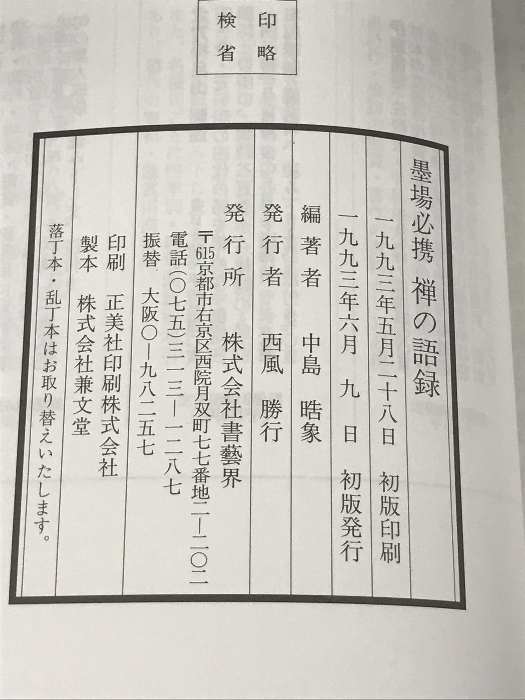 検印
省略
墨場必携 禅の語録
一九九三年五月二十八日 初版印刷
一九九三年六月 九 日 初版発行
編著者 中島 晧象
発行者 西風 勝行
発行所 株式会社書藝界
〒615京都市右京区西院月双町七七番地二―二〇二
電話(〇七五)三一三―一二八七
振替 大阪〇―九八二五七
印刷 正美社印刷株式会社
製本 株式会社兼文堂
落丁本・乱丁本はお取り替えいたします。